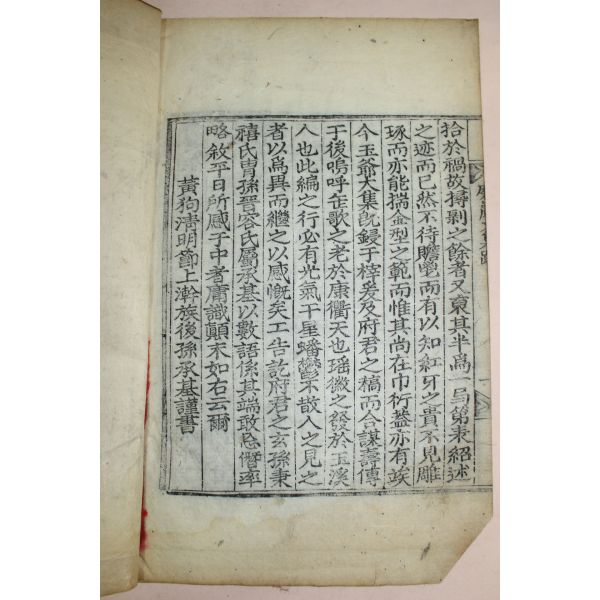 拾於禍故燖剝之餘者又裒其半爲一馬第秉紹述
之迹而已然不待贍寶而有以知紅牙之貴不見雕
琢而亦能揣金型之範而惟其尚在巾衍盖亦有竢
今玉爺大集旣鋟于梓爰及府君之稿而合謀壽傳
于後嗚呼缶歌之老於康衢天也瑶徽之發於玉溪
人也此編之行必有光氣干星蟠鬱不散人之見之
者以爲異而繼之以感慨矣工告訖府君之玄孫秉
禧氏胄孫晉容氏屬承基以數語係其端敢忘僭率
略敘平日所感于中者庸識顚末如右云爾
黃狗淸明節上澣族後孫承基謹書